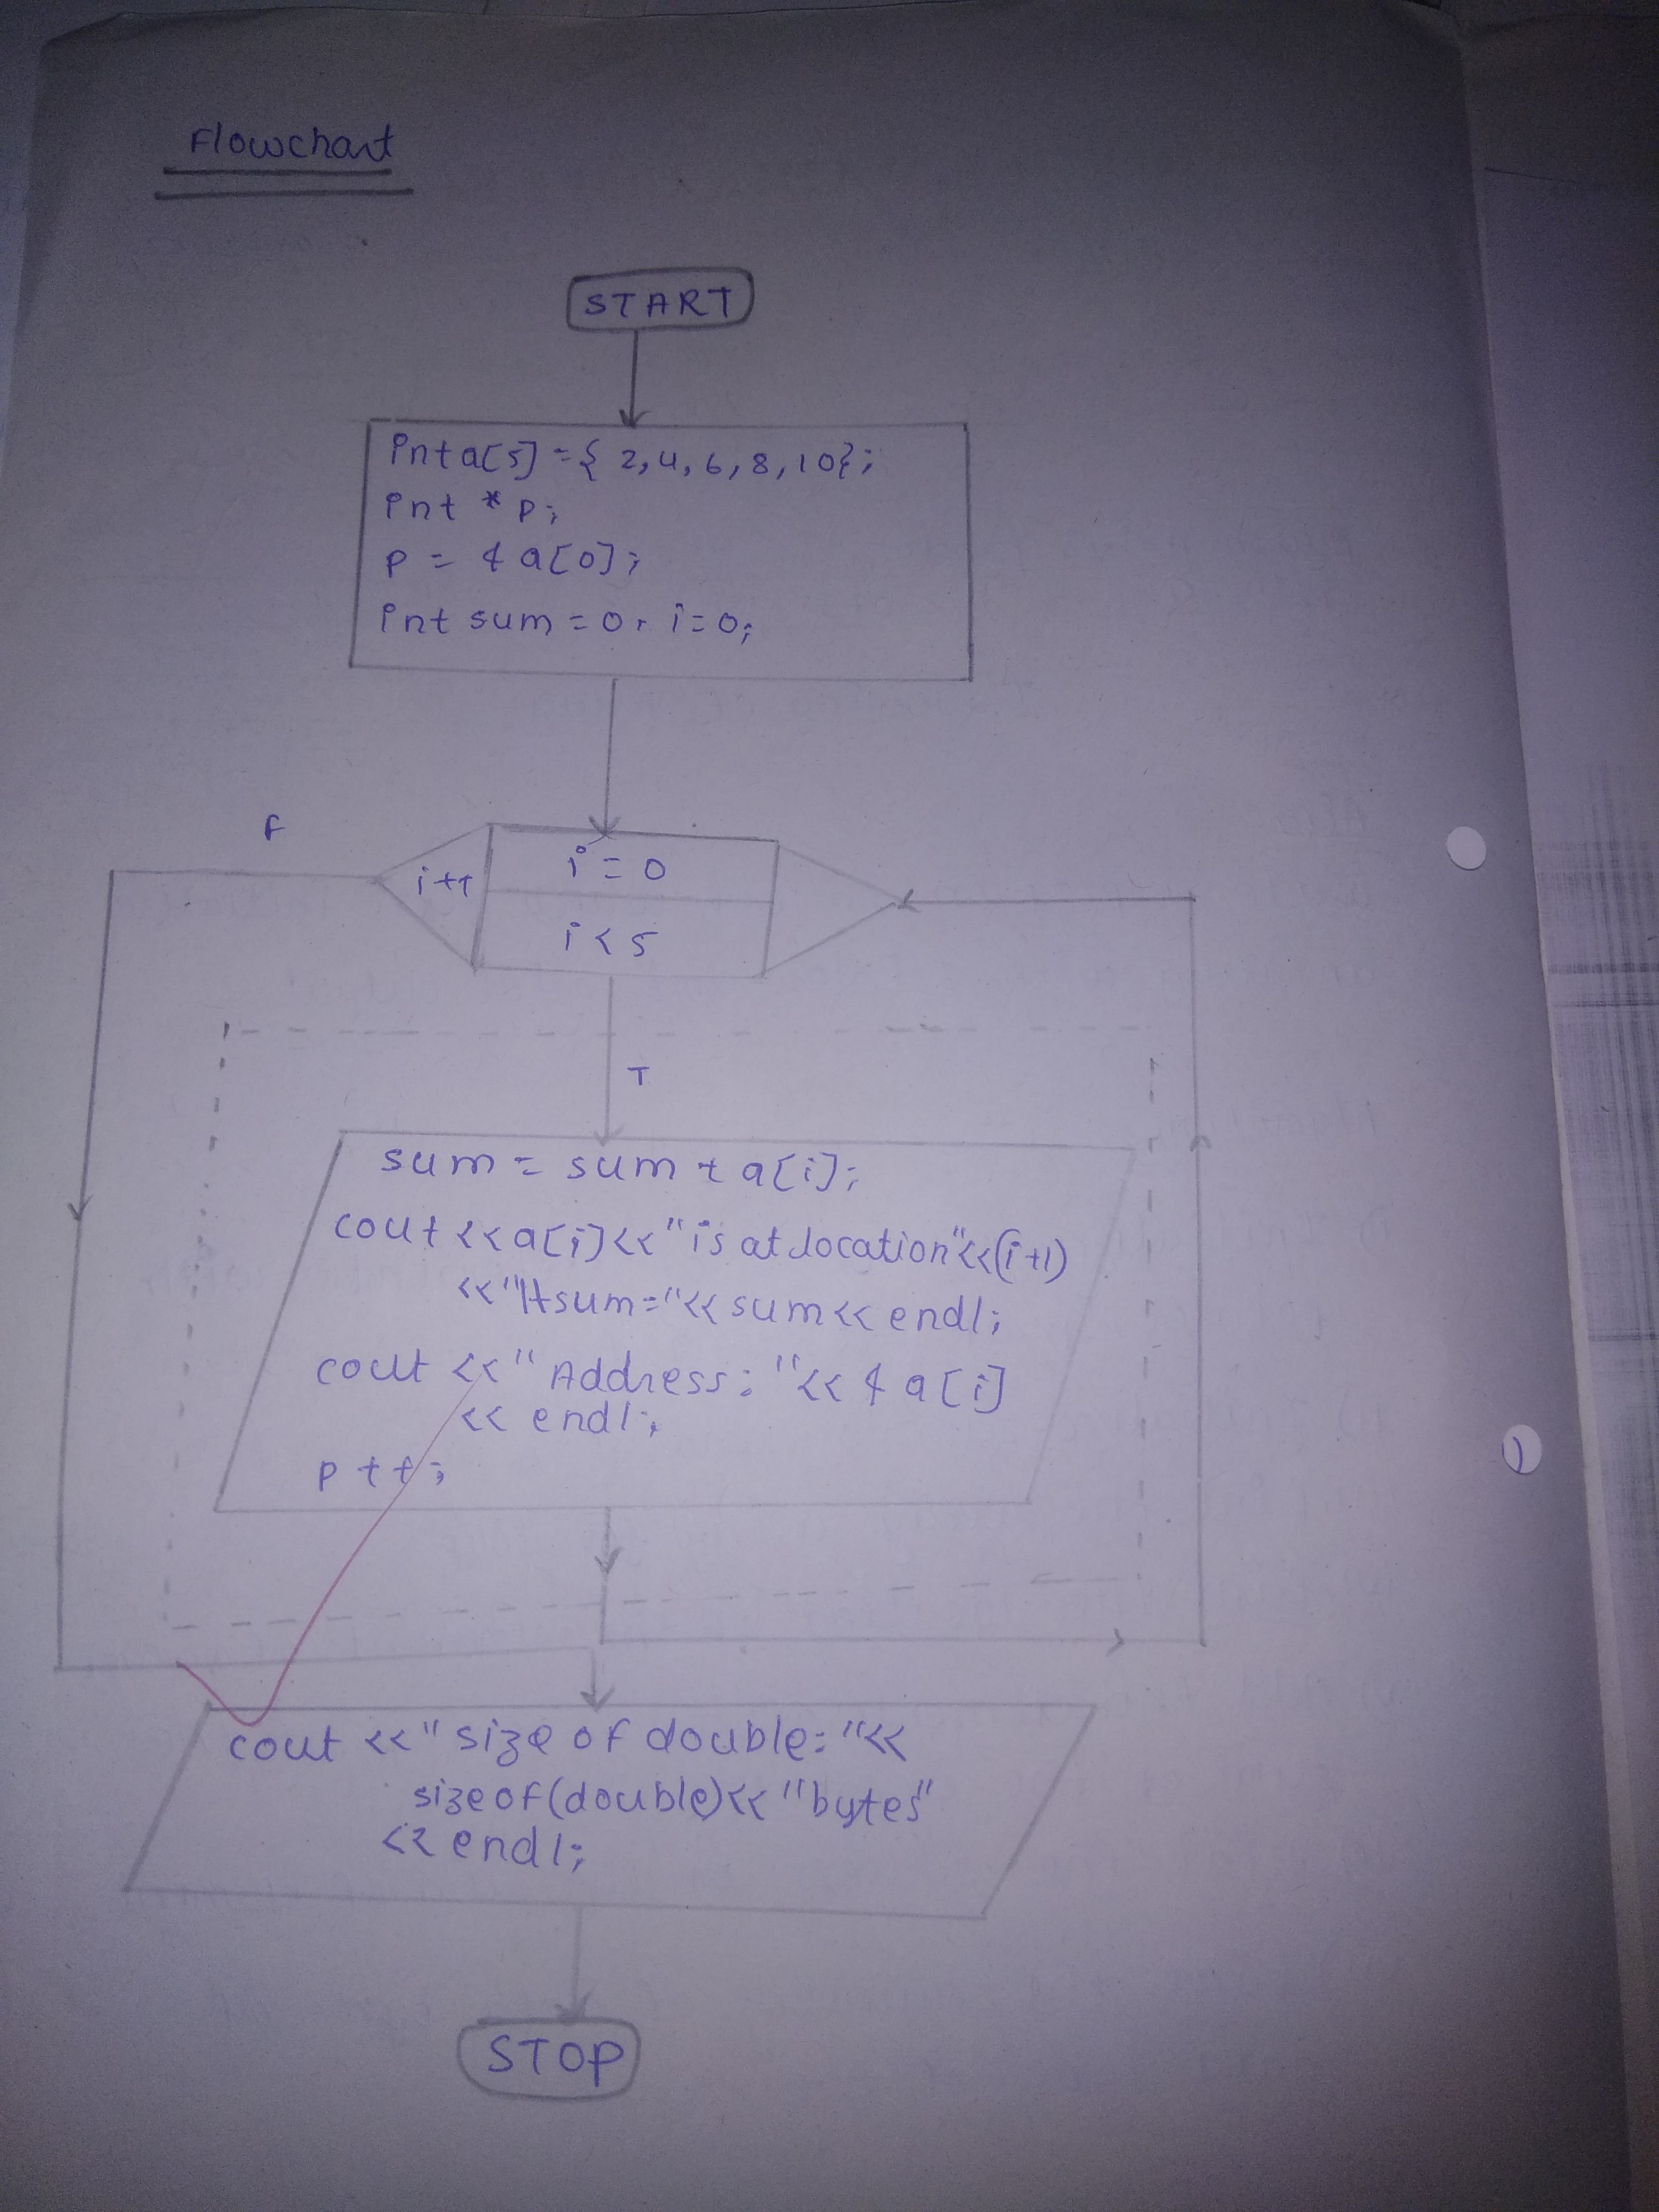 Flowchart
START
int a[5] = { 2, 4, 6, 8, 10};
int * p;
p = & a[0];
int sum = 0, i = 0;
F
i++
i = 0
i < 5
T
sum = sum + a[i];
cout << a[i] << "is at location" << (i+1)
<< "\tsum=" << sum << endl;
cout << "Address: " << & a[i]
<< endl;
p++;
cout << "size of double: " <<
sizeof(double) << "bytes"
<< endl;
STOP